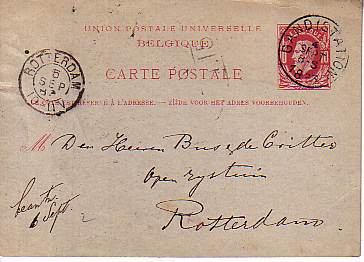 UNION POSTALE UNIVERSELLE
BELGIQUE
CARTE POSTALE
CÔTÉ RÉSERVÉ À L'ADRESSE. — ZIJDE VOOR HET ADRES VOORBEHOUDEN.
ROTTERDAM
6
SEP
GAND (STATION)
M Den Heeren Bus & de Critter
Rotterdam
6 Sept.